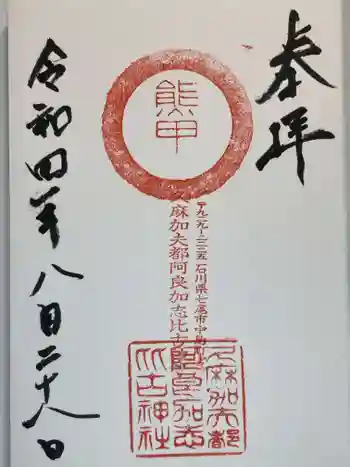 奉拝
〒九二九-二二二五 石川県七尾市中島町
久麻加夫都阿良加志比古
熊甲
久麻加夫都
阿良加志
比古神社
令和四年八月二十八日